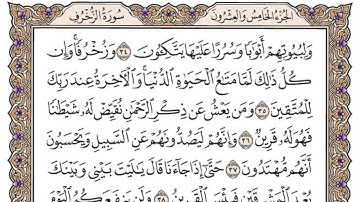 الجزء الخامس والعشرون
سورة الزخرف
وَلِبُيُوتِهِمْ أَبْوَٰبًا وَسُرُرًا عَلَيْهَا يَتَّكِـُٔونَ ٣٤ وَزُخْرُفًا وَإِن
كُلُّ ذَٰلِكَ لَمَّا مَتَٰعُ ٱلْحَيَوٰةِ ٱلدُّنْيَا وَٱلْءَاخِرَةُ عِندَ رَبِّكَ
لِلْمُتَّقِينَ ٣٥ وَمَن يَعْشُ عَن ذِكْرِ ٱلرَّحْمَٰنِ نُقَيِّضْ لَهُۥ شَيْطَٰنًا
فَهُوَ لَهُۥ قَرِينٌ ٣٦ وَإِنَّهُمْ لَيَصُدُّونَهُمْ عَنِ ٱلسَّبِيلِ وَيَحْسَبُونَ
أَنَّهُم مُّهْتَدُونَ ٣٧ حَتَّىٰٓ إِذَا جَآءَنَا قَالَ يَٰلَيْتَ بَيْنِى وَبَيْنَكَ
بُعْدَ ٱلْمَشْرِقَيْنِ فَبِئْسَ ٱلْقَرِينُ ٣٨ وَلَن يَنفَعَكُمُ ٱلْيَوْمَ